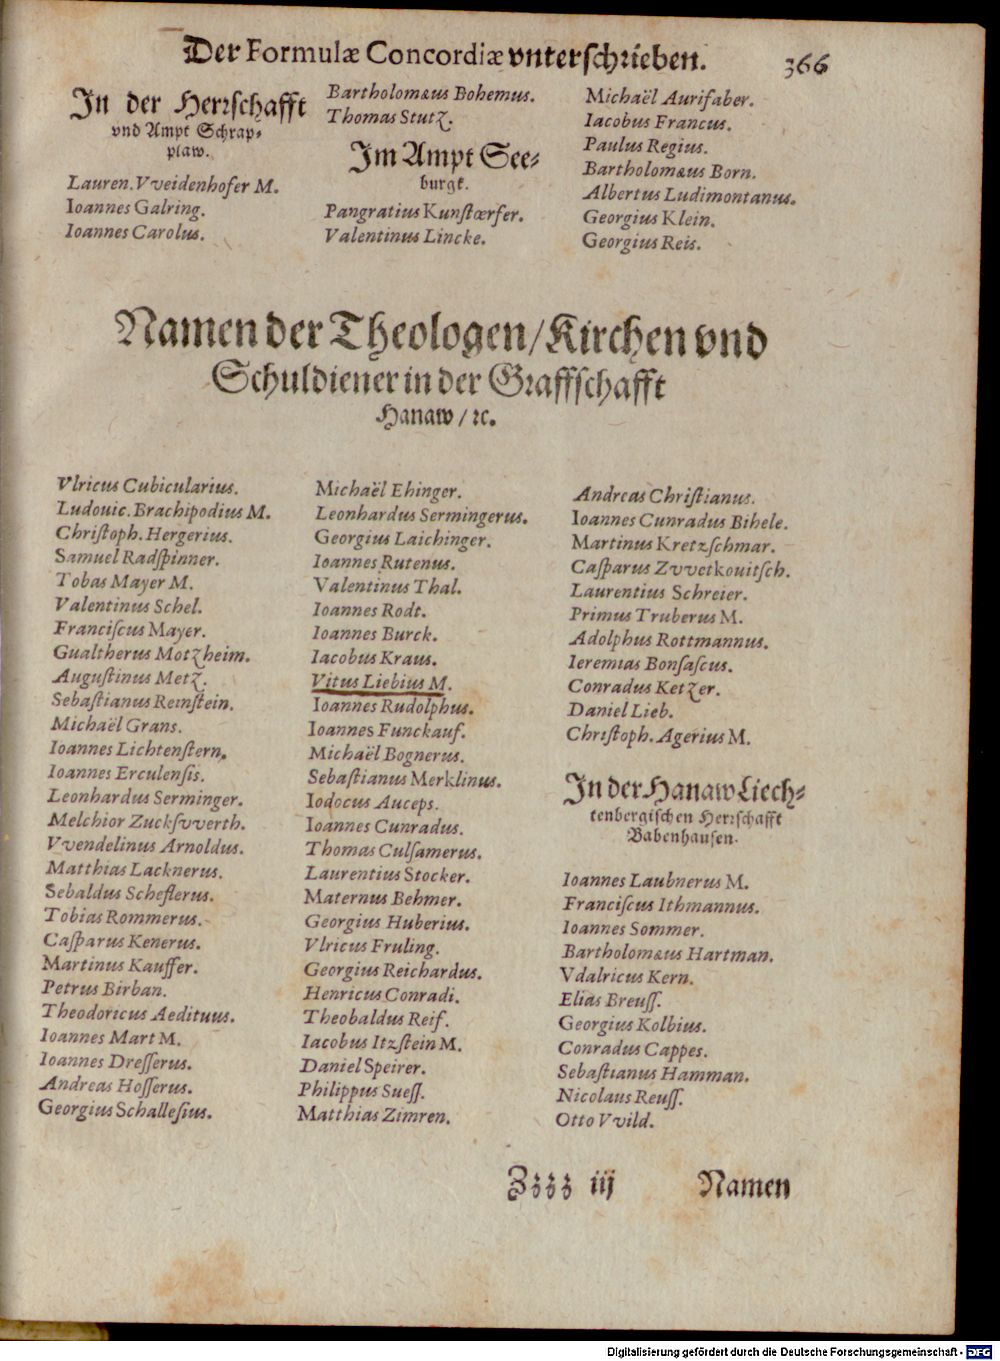 Der Formulæ Concordiæ vnterschrieben. 366
In der Herrschafft
vnd Ampt Schrap-
plaw.
Lauren. Vveidenhofer M.
Ioannes Galring.
Ioannes Carolus.
Bartholomæus Bohemus.
Thomas Stutz.
Im Ampt See-
burgk.
Pangratius Kunstœrfer.
Valentinus Lincke.
Michaël Aurifaber.
Iacobus Francus.
Paulus Regius.
Bartholomæus Born.
Albertus Ludimontanus.
Georgius Klein.
Georgius Reis.
Namen der Theologen/Kirchen vnd
Schuldiener in der Graffschafft
Hanaw/ꝛc.
Vlricus Cubicularius.
Ludouic. Brachipodius M.
Christoph. Hergerius.
Samuel Radspinner.
Tobas Mayer M.
Valentinus Schel.
Franciscus Mayer.
Gualtherus Motzheim.
Augustinus Metz.
Sebastianus Reinstein.
Michaël Grans.
Ioannes Lichtenstern.
Ioannes Erculensis.
Leonhardus Serminger.
Melchior Zucksvverth.
Vvendelinus Arnoldus.
Matthias Lacknerus.
Sebaldus Scheflerus.
Tobias Rommerus.
Casparus Kenerus.
Martinus Kauffer.
Petrus Birban.
Theodoricus Aedituus.
Ioannes Mart M.
Ioannes Dresserus.
Andreas Hosserus.
Georgius Schallesius.
Michaël Ehinger.
Leonhardus Sermingerus.
Georgius Laichinger.
Ioannes Rutenus.
Valentinus Thal.
Ioannes Rodt.
Ioannes Burck.
Iacobus Kraus.
Vitus Liebius M.
Ioannes Rudolphus.
Ioannes Funckauf.
Michaël Bognerus.
Sebastianus Merklinus.
Iodocus Auceps.
Ioannes Cunradus.
Thomas Culsamerus.
Laurentius Stocker.
Maternus Behmer.
Georgius Huberius.
Vlricus Fruling.
Georgius Reichardus.
Henricus Conradi.
Theobaldus Reif.
Iacobus Itzstein M.
Daniel Speirer.
Philippus Suess.
Matthias Zimren.
Andreas Christianus.
Ioannes Cunradus Bihele.
Martinus Kretzschmar.
Casparus Zvvetkouitsch.
Laurentius Schreier.
Primus Truberus M.
Adolphus Rottmannus.
Ieremias Bonsascus.
Conradus Ketzer.
Daniel Lieb.
Christoph. Agerius M.
In der Hanaw Liech-
tenbergischen Herrschafft
Babenhausen.
Ioannes Laubnerus M.
Franciscus Ithmannus.
Ioannes Sommer.
Bartholomæus Hartman.
Vdalricus Kern.
Elias Breuss.
Georgius Kolbius.
Conradus Cappes.
Sebastianus Hamman.
Nicolaus Reuss.
Otto Vvild.
Zzzz iij Namen
Digitalisierung gefördert durch die Deutsche Forschungsgemeinschaft - DFG